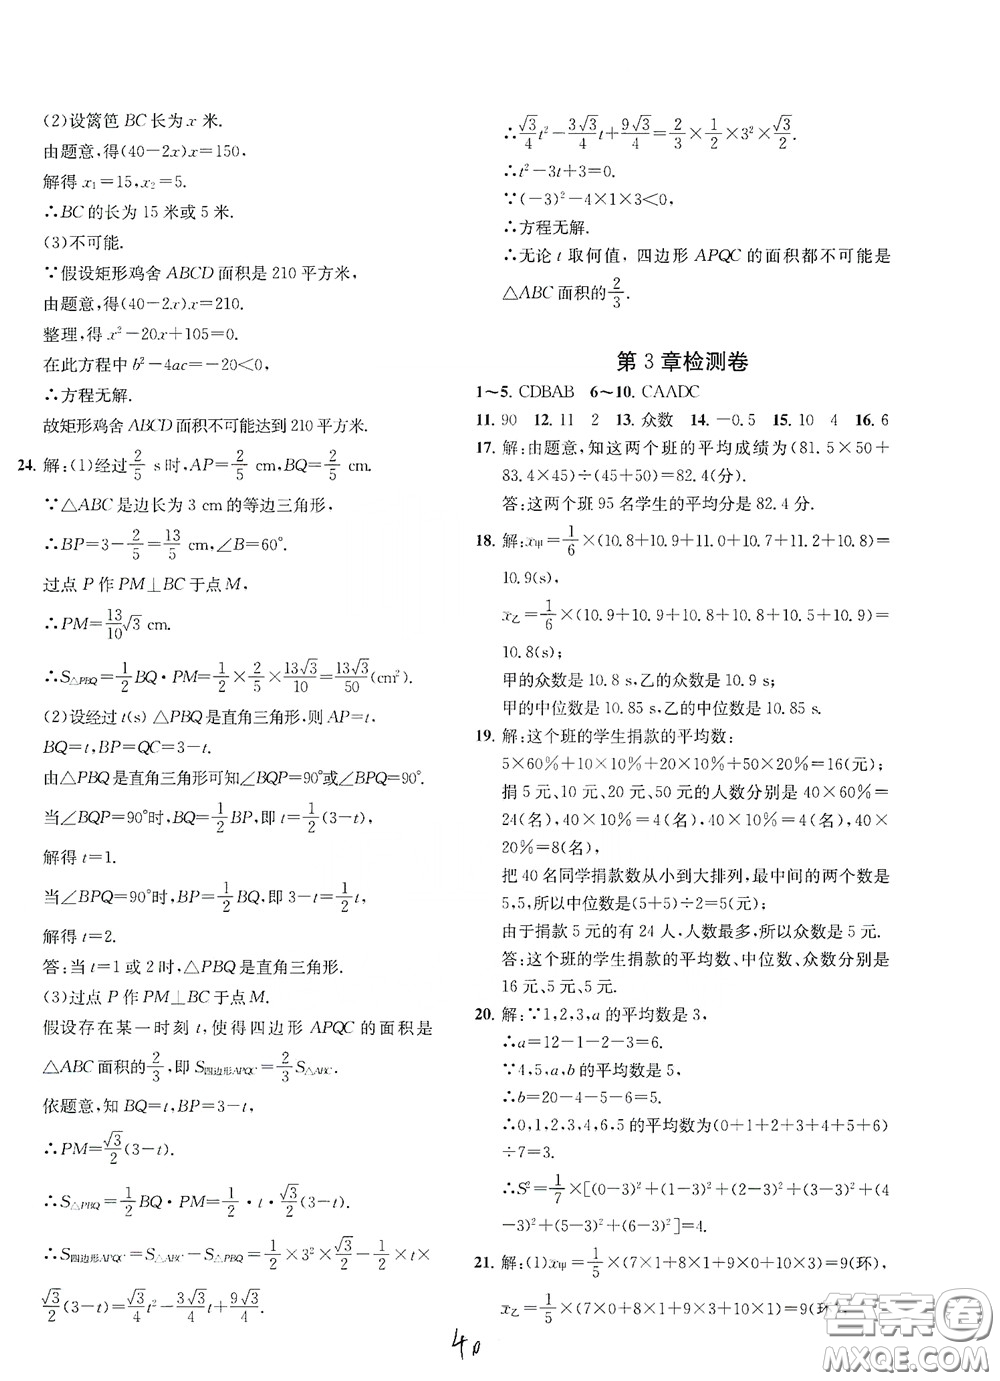 (2)设篱笆 BC 长为 x 米.
由题意,得(40-2x)x=150,
解得 x₁=15,x₂=5.
∴BC 的长为 15 米或 5 米.
(3)不可能.
∵假设矩形鸡舍 ABCD 面积是 210 平方米,
由题意,得(40-2x)x=210.
整理,得 x²-20x+105=0.
在此方程中 b²-4ac=-20<0,
∴方程无解.
故矩形鸡舍 ABCD 面积不可能达到 210 平方米.
24. 解:(1)经过2/5 s时,AP=2/5 cm,BQ=2/5 cm.
∵△ABC 是边长为 3 cm 的等边三角形,
∴BP=3-2/5=13/5 cm,∠B=60°.
过点 P 作 PM⊥BC 于点 M,
∴PM=13/10√3 cm.
∴S△PBQ=1/2BQ·PM=1/2×2/5×13√3/10=13√3/50(cm²).
(2)设经过 t(s) △PBQ 是直角三角形,则 AP=t,
BQ=t,BP=QC=3-t.
由△PBQ 是直角三角形可知∠BQP=90°或∠BPQ=90°.
当∠BQP=90°时,BQ=1/2BP,即 t=1/2(3-t),
解得 t=1.
当∠BPQ=90°时,BP=1/2BQ,即 3-t=1/2t,
解得 t=2.
答:当 t=1 或 2 时,△PBQ 是直角三角形.
(3)过点 P 作 PM⊥BC 于点 M.
假设存在某一时刻 t,使得四边形 APQC 的面积是
△ABC 面积的2/3,即 S四边形APQC=2/3S△ABC.
依题意,知 BQ=t,BP=3-t,
∴PM=√3/2(3-t).
∴S△PBQ=1/2BQ·PM=1/2·t·√3/2(3-t).
∴S四边形APQC=S△ABC-S△PBQ=1/2×3²×√3/2-1/2×t×
√3/2(3-t)=√3/4t²-3√3/4t+9√3/4.
∴√3/4t²-3√3/4t+9√3/4=2/3×1/2×3²×√3/2.
∴t²-3t+3=0.
∵(-3)²-4×1×3<0,
∴方程无解.
∴无论 t 取何值,四边形 APQC 的面积都不可能是
△ABC 面积的2/3.
第 3 章检测卷
1~5. CDBAB 6~10. CAADC
11. 90 12. 11 2 13. 众数 14. -0.5 15. 10 4 16. 6
17. 解:由题意,知这两个班的平均成绩为(81.5×50+
83.4×45)÷(45+50)=82.4(分).
答:这两个班 95 名学生的平均分是 82.4 分.
18. 解:x̄甲=1/6×(10.8+10.9+11.0+10.7+11.2+10.8)=
10.9(s),
x̄乙=1/6×(10.9+10.9+10.8+10.8+10.5+10.9)=
10.8(s);
甲的众数是 10.8 s,乙的众数是 10.9 s;
甲的中位数是 10.85 s,乙的中位数是 10.85 s.
19. 解:这个班的学生捐款的平均数:
5×60%+10×10%+20×10%+50×20%=16(元);
捐 5 元、10 元、20 元、50 元的人数分别是 40×60%=
24(名),40×10%=4(名),40×10%=4(名),40×
20%=8(名),
把 40 名同学捐款数从小到大排列,最中间的两个数是
5,5,所以中位数是(5+5)÷2=5(元);
由于捐款 5 元的有 24 人,人数最多,所以众数是 5 元.
答:这个班的学生捐款的平均数、中位数、众数分别是
16 元、5 元、5 元.
20. 解:∵1,2,3,a 的平均数是 3,
∴a=12-1-2-3=6.
∵4,5,a,b 的平均数是 5,
∴b=20-4-5-6=5.
∴0,1,2,3,4,6,5 的平均数为(0+1+2+3+4+5+6)
÷7=3.
∴S²=1/7×[(0-3)²+(1-3)²+(2-3)²+(3-3)²+(4
-3)²+(5-3)²+(6-3)²]=4.
21. 解:(1)x̄甲=1/5×(7×1+8×1+9×0+10×3)=9(环),
x̄乙=1/5×(7×0+8×1+9×3+10×1)=9(环).
40
答案圈
MXQE.COM